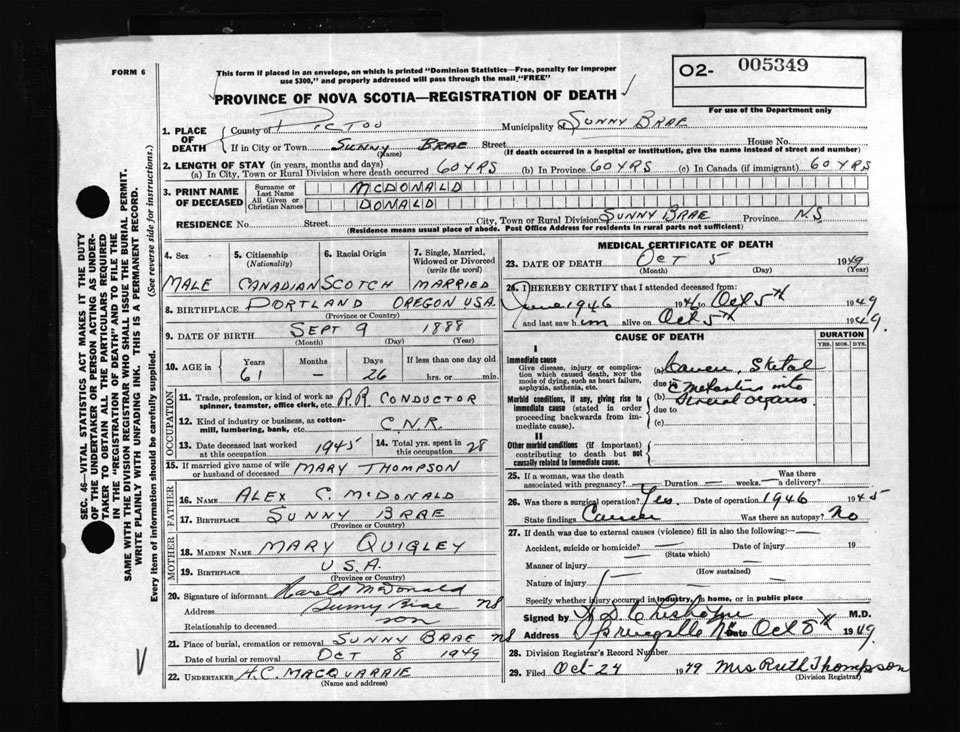 FORM 6
This form if placed in an envelope, on which is printed "Dominion Statistics—Free, penalty for improper
use $300," and properly addressed will pass through the mail "FREE"
PROVINCE OF NOVA SCOTIA—REGISTRATION OF DEATH
O2- 005349
For use of the Department only
SEC. 46—VITAL STATISTICS ACT MAKES IT THE DUTY
OF THE UNDERTAKER OR PERSON ACTING AS UNDER-
TAKER TO OBTAIN ALL THE PARTICULARS REQUIRED
IN THE "REGISTRATION OF DEATH" AND TO FILE THE
SAME WITH THE DIVISION REGISTRAR WHO SHALL ISSUE THE BURIAL PERMIT.
WRITE PLAINLY WITH UNFADING INK. THIS IS A PERMANENT RECORD.
Every item of information should be carefully supplied. (See reverse side for instructions.)
1. PLACE OF DEATH
County of PICTOU Municipality of SUNNY BRAE
If in City or Town SUNNY BRAE Street House No.
(Name) (If death occurred in a hospital or institution, give the name instead of street and number)
2. LENGTH OF STAY (in years, months and days)
(a) In City, Town or Rural Division where death occurred 60 YRS (b) In Province 60 YRS (c) In Canada (if immigrant) 60 YRS
3. PRINT NAME OF DECEASED
Surname or Last Name MCDONALD
All Given or Christian Names DONALD
RESIDENCE No. Street City, Town or Rural Division SUNNY BRAE Province N.S
(Residence means usual place of abode. Post Office Address for residents in rural parts not sufficient)
4. Sex MALE
5. Citizenship (Nationality) CANADIAN
6. Racial Origin SCOTCH
7. Single, Married, Widowed or Divorced (write the word) MARRIED
8. BIRTHPLACE PORTLAND OREGON U.S.A.
(Province or Country)
9. DATE OF BIRTH SEPT 9 1888
(Month) (Day) (Year)
10. AGE in Years Months Days If less than one day old
61 — 26 hrs. or min.
OCCUPATION
11. Trade, profession, or kind of work as spinner, teamster, office clerk, etc. R.R CONDUCTOR
12. Kind of industry or business, as cotten-mill, lumbering, bank, etc. C.N.R.
13. Date deceased last worked at this occupation 1945
14. Total yrs. spent in this occupation 28
15. If married give name of wife or husband of deceased MARY THOMPSON
FATHER
16. NAME ALEX C. MCDONALD
17. BIRTHPLACE SUNNY BRAE
(Province or Country)
MOTHER
18. MAIDEN NAME MARY QUIGLEY
19. BIRTHPLACE U.S.A.
(Province or Country)
20. Signature of informant Harold McDonald
Address Sunny Brae NS
Relationship to deceased son
21. Place of burial, cremation or removal SUNNY BRAE NS
Date of burial or removal OCT 8 1949
22. UNDERTAKER H.C. MACQUARRIE
(Name and address)
MEDICAL CERTIFICATE OF DEATH
23. DATE OF DEATH Oct 5 1949
(Month) (Day) (Year)
24. I HEREBY CERTIFY that I attended deceased from:
June 1946 1946 to Oct 5th 1949
and last saw him alive on Oct 5th 1949.
CAUSE OF DEATH DURATION
YRS. MOS. DYS.
I
Immediate cause
Give disease, injury or complication which caused death, not the mode of dying, such as heart failure, asphyxia, asthenia, etc.
(a) Cancer,
due to
Morbid conditions, if any, giving rise to immediate cause (stated in order proceeding backwards from immediate cause).
(b) into
due to Several organs.
(c)
II
Other morbid conditions (if important) contributing to death but not causally related to immediate cause.
25. If a woman, was the death associated with pregnancy? Duration — weeks. Was there a delivery?
26. Was there a surgical operation? Yes. Date of operation 1946 1945
State findings Cancer Was there an autopsy? No
27. If death was due to external causes (violence) fill in also the following:—
Accident, suicide or homicide? — Date of injury — 19
(State which)
Manner of injury
(How sustained)
Nature of injury
Specify whether injury occurred in industry, in home, or in public place
Signed by Chisholm M.D.
Address Springville NS Date Oct 8th 1949
28. Division Registrar's Record Number
29. Filed Oct-24 1949 Mrs Ruth Thompson
(Division Registrar)